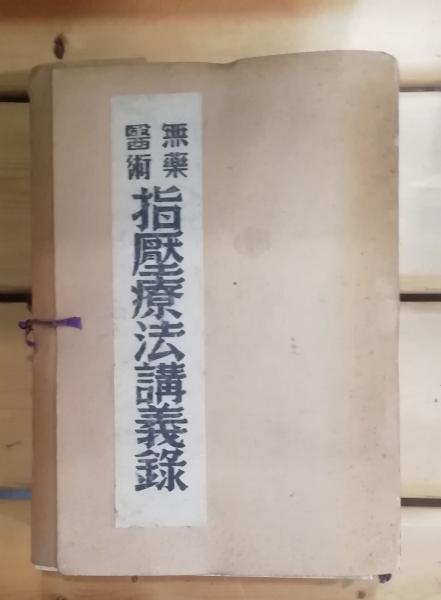 無藥
醫術
指壓療法講義錄